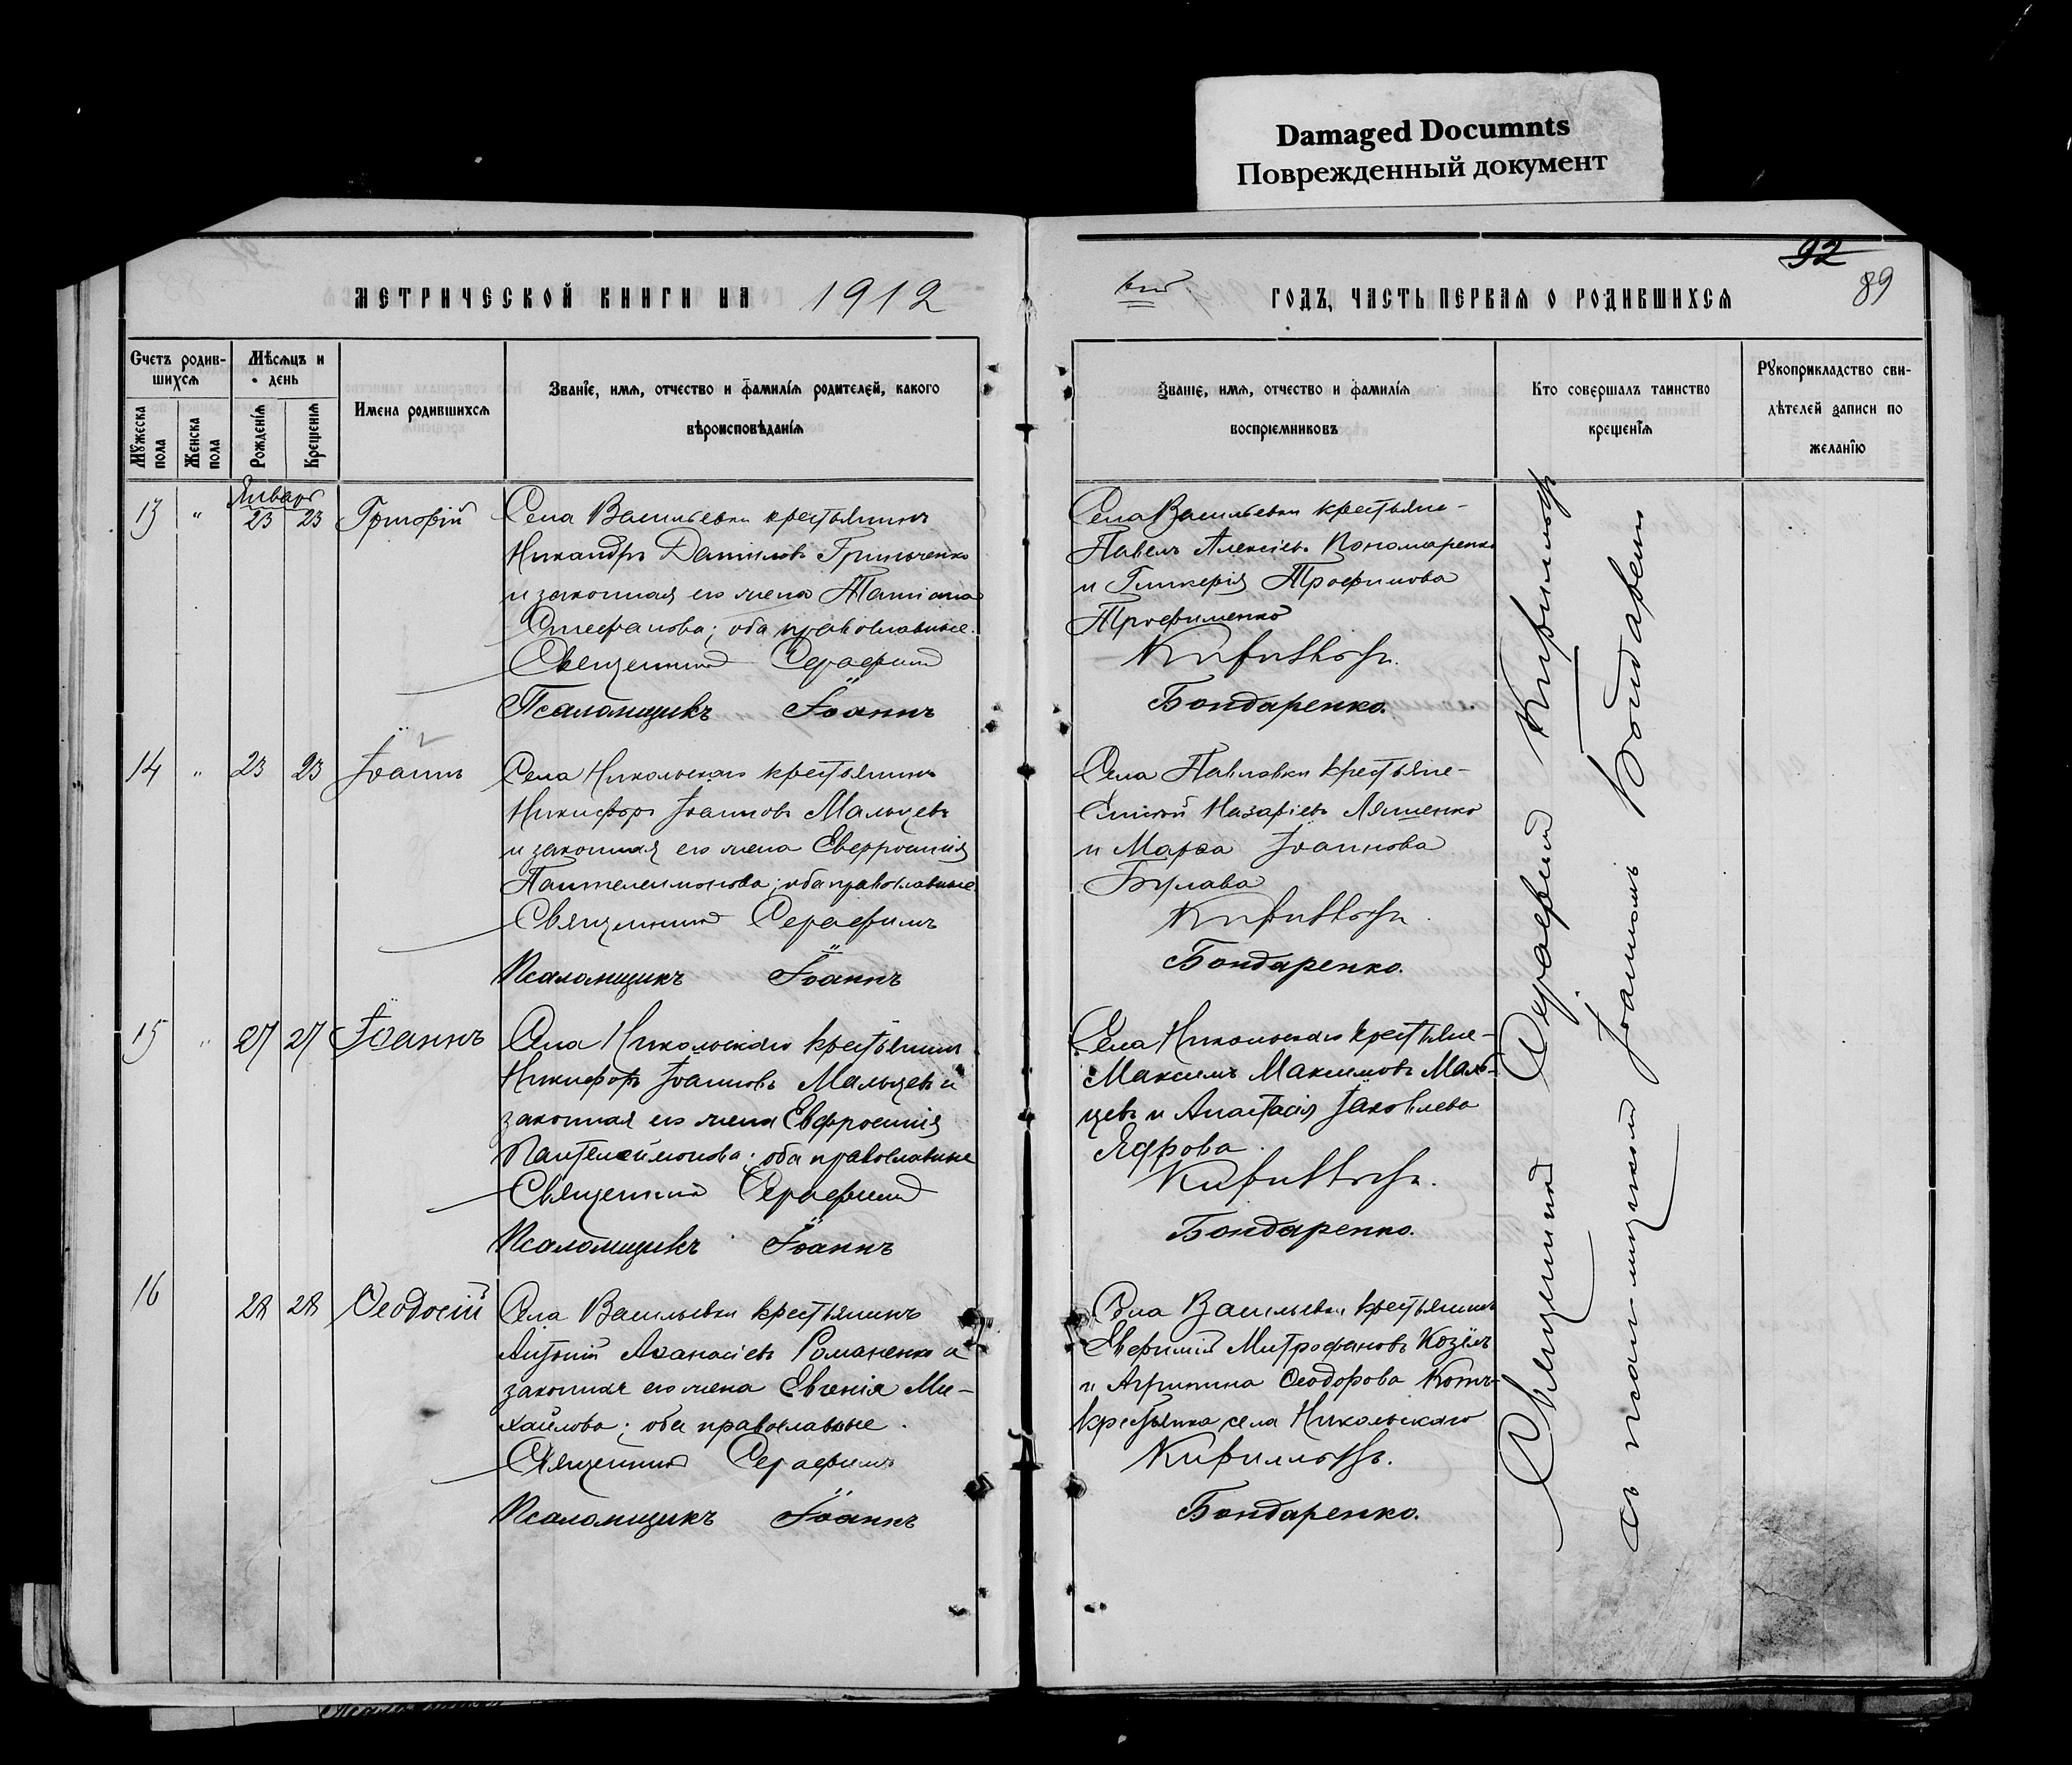 Damaged Documnts
Поврежденный документ
92
89
МЕТРИЧЕСКОЙ КНИГИ НА 1912
ГОДЪ, ЧАСТЬ ПЕРВАЯ О РОДИВШИХСЯ
Счетъ родив-
шихся
Мужеска пола
Женска пола
Мѣсяцъ и
день
Рожденія
Крещенія
Имена родившихся
Званіе, имя, отчество и фамилія родителей, какого
вѣроисповѣданія
Званіе, имя, отчество и фамилія
воспріемниковъ
Кто совершалъ таинство
крещенія
Рукоприкладство сви-
дѣтелей записи по
желанію
Январь
13 " 23 23 Григорій
Села Васильевки крестьянинъ
Никандръ Даніиловъ Гринченко
и законная его жена Татіана
Стефанова; оба православные.
Священникъ Серафимъ
Псаломщикъ Іоаннъ
Села Васильевки крестьяне-
Павелъ Алексіевъ Пономаренко
и Гликерія Трофимова
Трофименко
Бондаренко.
14 " 23 23 Іоаннъ
Села Никольскаго крестьянинъ
Никифоръ Іоанновъ Мальцевъ
и законная его жена Евфросинія
Пантелеимонова; оба православные
Священникъ Серафимъ
Псаломщикъ Іоаннъ
Села Павловки крестьяне-
Назаріевъ Ляшенко
и Марѳа Іоаннова
Булава
Бондаренко.
15 " 27 27 Іоаннъ
Села Никольскаго крестьянинъ
Никифоръ Іоанновъ Мальцевъ и
законная его жена Евфросинія
Пантелеймонова; оба православные
Священникъ Серафимъ
Псаломщикъ Іоаннъ
Села Никольскаго крестьяне-
Максимъ Максимовъ Маль-
цевъ и Анастасія Іаковлева
Ядрова
Бондаренко.
16 28 28 Ѳеодосій
Села Васильевки крестьянинъ
Антоній Аѳанасіевъ Романенко и
законная его жена Евгенія Ми-
хайлова; оба православные.
Священникъ Серафимъ
Псаломщикъ Іоаннъ
Села Васильевки крестьянинъ
Евфимій Митрофановъ Козѣлъ
и Агрипина Ѳеодорова
крестьянка села Никольскаго
Бондаренко.
Священникъ Серафимъ
съ псаломщикомъ Іоанномъ Бондаренко